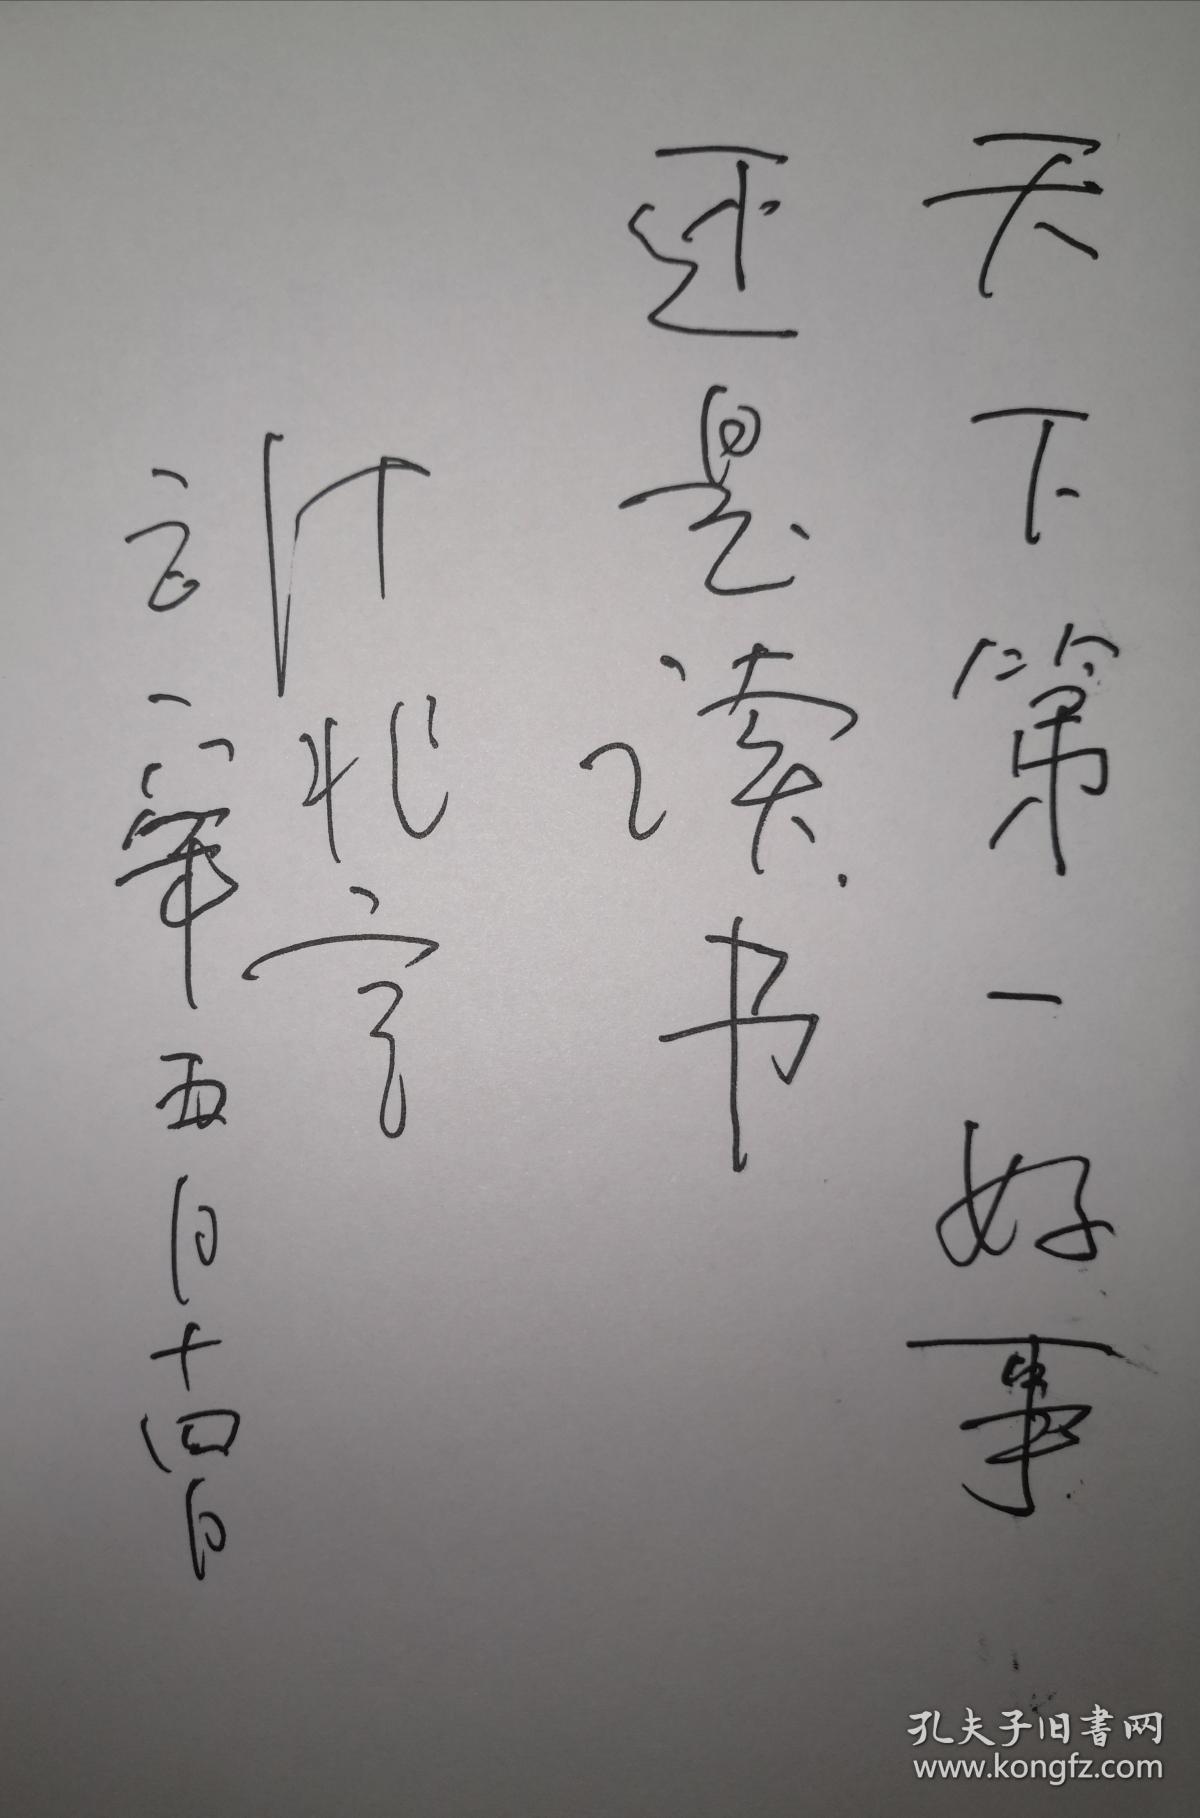 天下第一好事
还是读书
五月十四日
孔夫子旧書网
www.kongfz.com